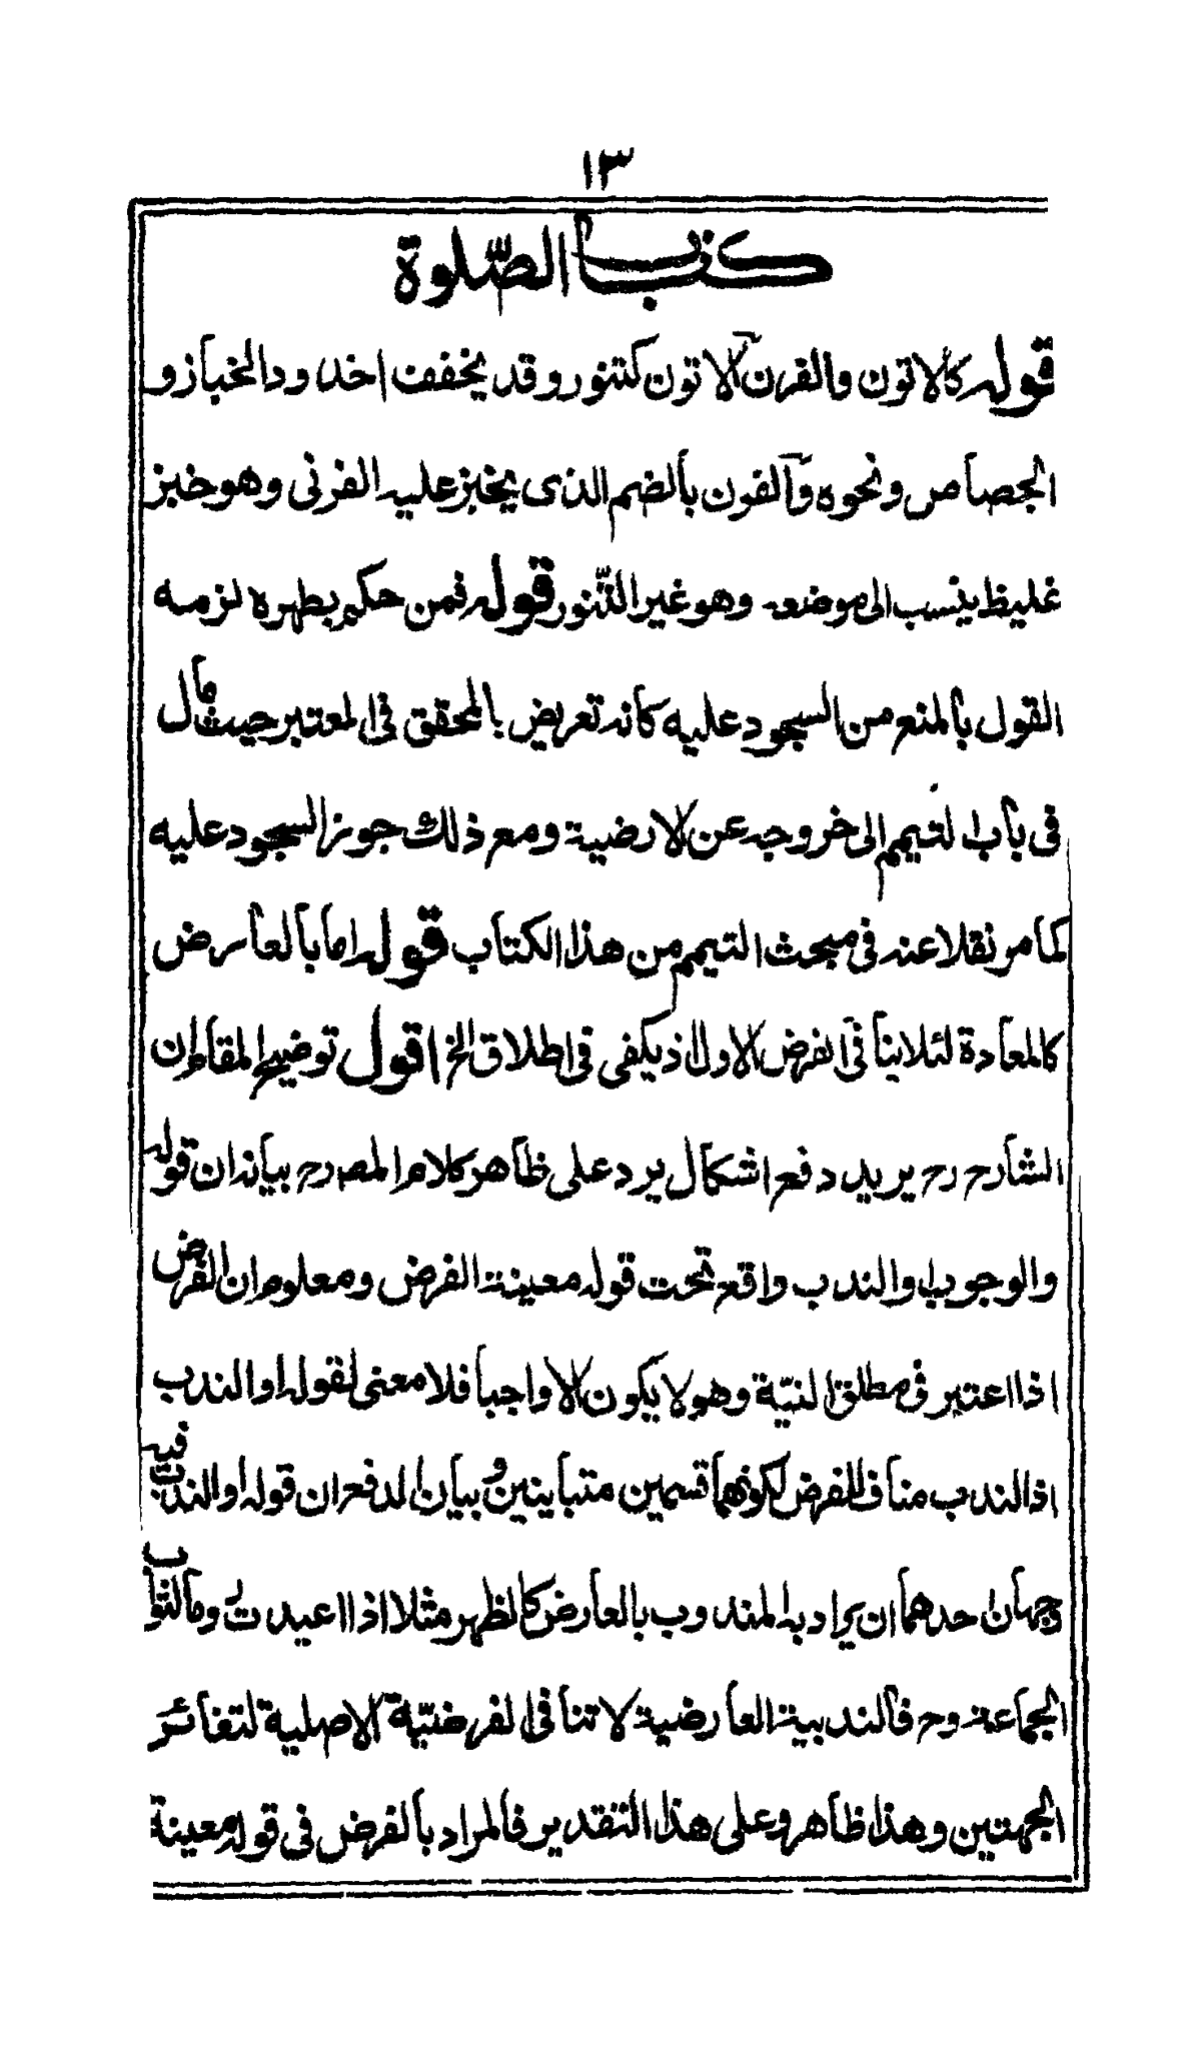 ١٣
كتاب الصّلوة
قوله كالاتون والفرن آلاتون كتنور وقد يخفف اخدود الخباز و
الجصاص ونحوه والفرن بالضم الذى يخبز عليه الفرنى وهو خبز
غليظ ينسب الى موضعه وهو غير التنّور قوله فمن حكم بطهره لزمه
القول بالمنع من السجود عليه كانه تعريض بالمحقق فى المعتبر حيث مال
فى باب التيمم الى خروجه عن الارضية ومع ذلك جوز السجود عليه
كما مر نقلا عنه فى مبحث التيمم من هذا الكتاب قوله اما بالعارض
كالمعادة لئلا ينا فى الفرض الاول اذ يكفى فى اطلاق الخ اقول توضيح المقام ان
الشارح رح يريد دفع اشكال يرد على ظاهر كلام المصرح بيانه ان قوله
والوجوب او الندب واقع تحت قوله معينة الفرض ومعلوم ان الفرض
اذا اعتبر فى مطلق النيّة وهو لا يكون الا واجبا فلا معنى لقوله او الندب
اذ الندب مناف للفرض لكونهما قسمين متباينين و بيان الدفع ان قوله او الندب فيه
وجهان احدهما ان يراد به المندوب بالعارض كالظهر مثلا اذا اعيدت وما لثواب
الجماعة وح فالندبية العارضية لا تنافى الفرضيّة الاصلية لتغائر
الجهتين وهذا ظاهر وعلى هذا التقدير فالمراد بالفرض فى قوله معينة